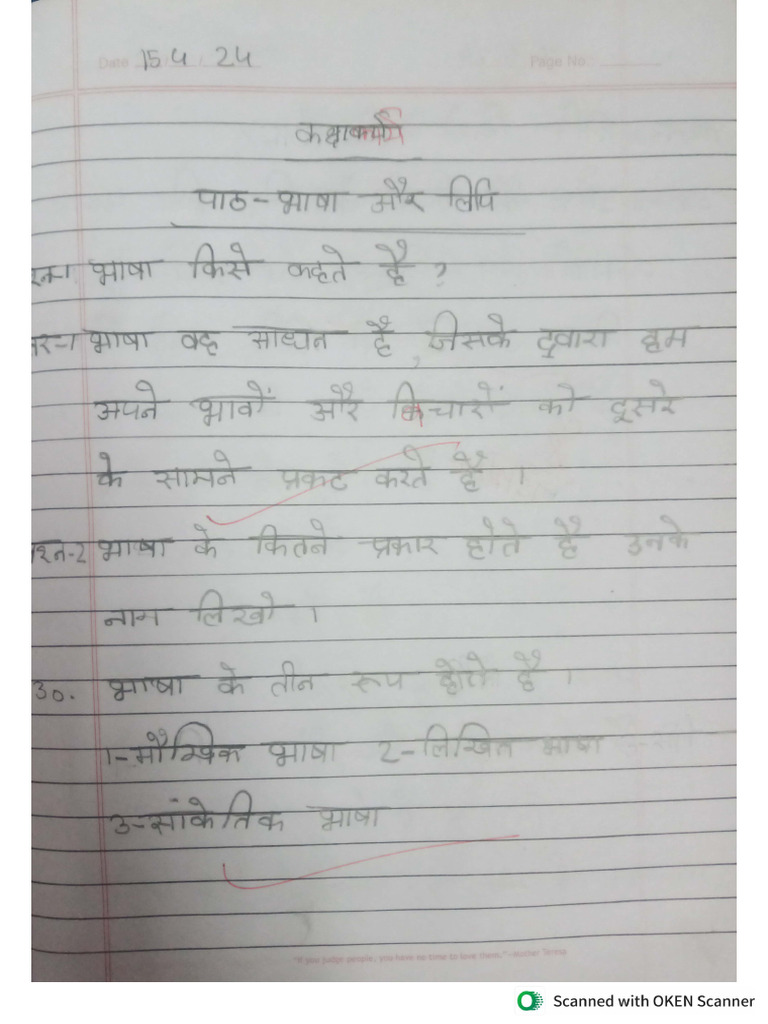 Date 15 4 24 Page No.
कक्षाकार्य
पाठ - भाषा और लिपि
भाषा किसे कहते है ?
भाषा वह साधन है, जिसके द्वारा हम
अपने भावों और विचारों को दूसरे
के सामने प्रकट करते है ।
भाषा के कितने प्रकार होते है उनके
नाम लिखो ।
उ०. भाषा के तीन रूप होते है ।
1- मौखिक भाषा 2- लिखित भाषा
3- सांकेतिक भाषा
"If you judge people, you have no time to love them." -Mother Teresa
Scanned with OKEN Scanner